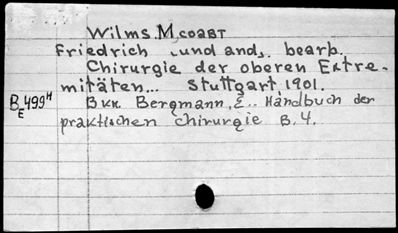 Wilms, M соавт
Friedrich und and. bearb.
Chirurgie der oberen Extre-
mitäten... Stuttgart, 1901.
BE499H В кн. Bergmann, E.. Handbuch der
praktischen Chirurgie B. 4.